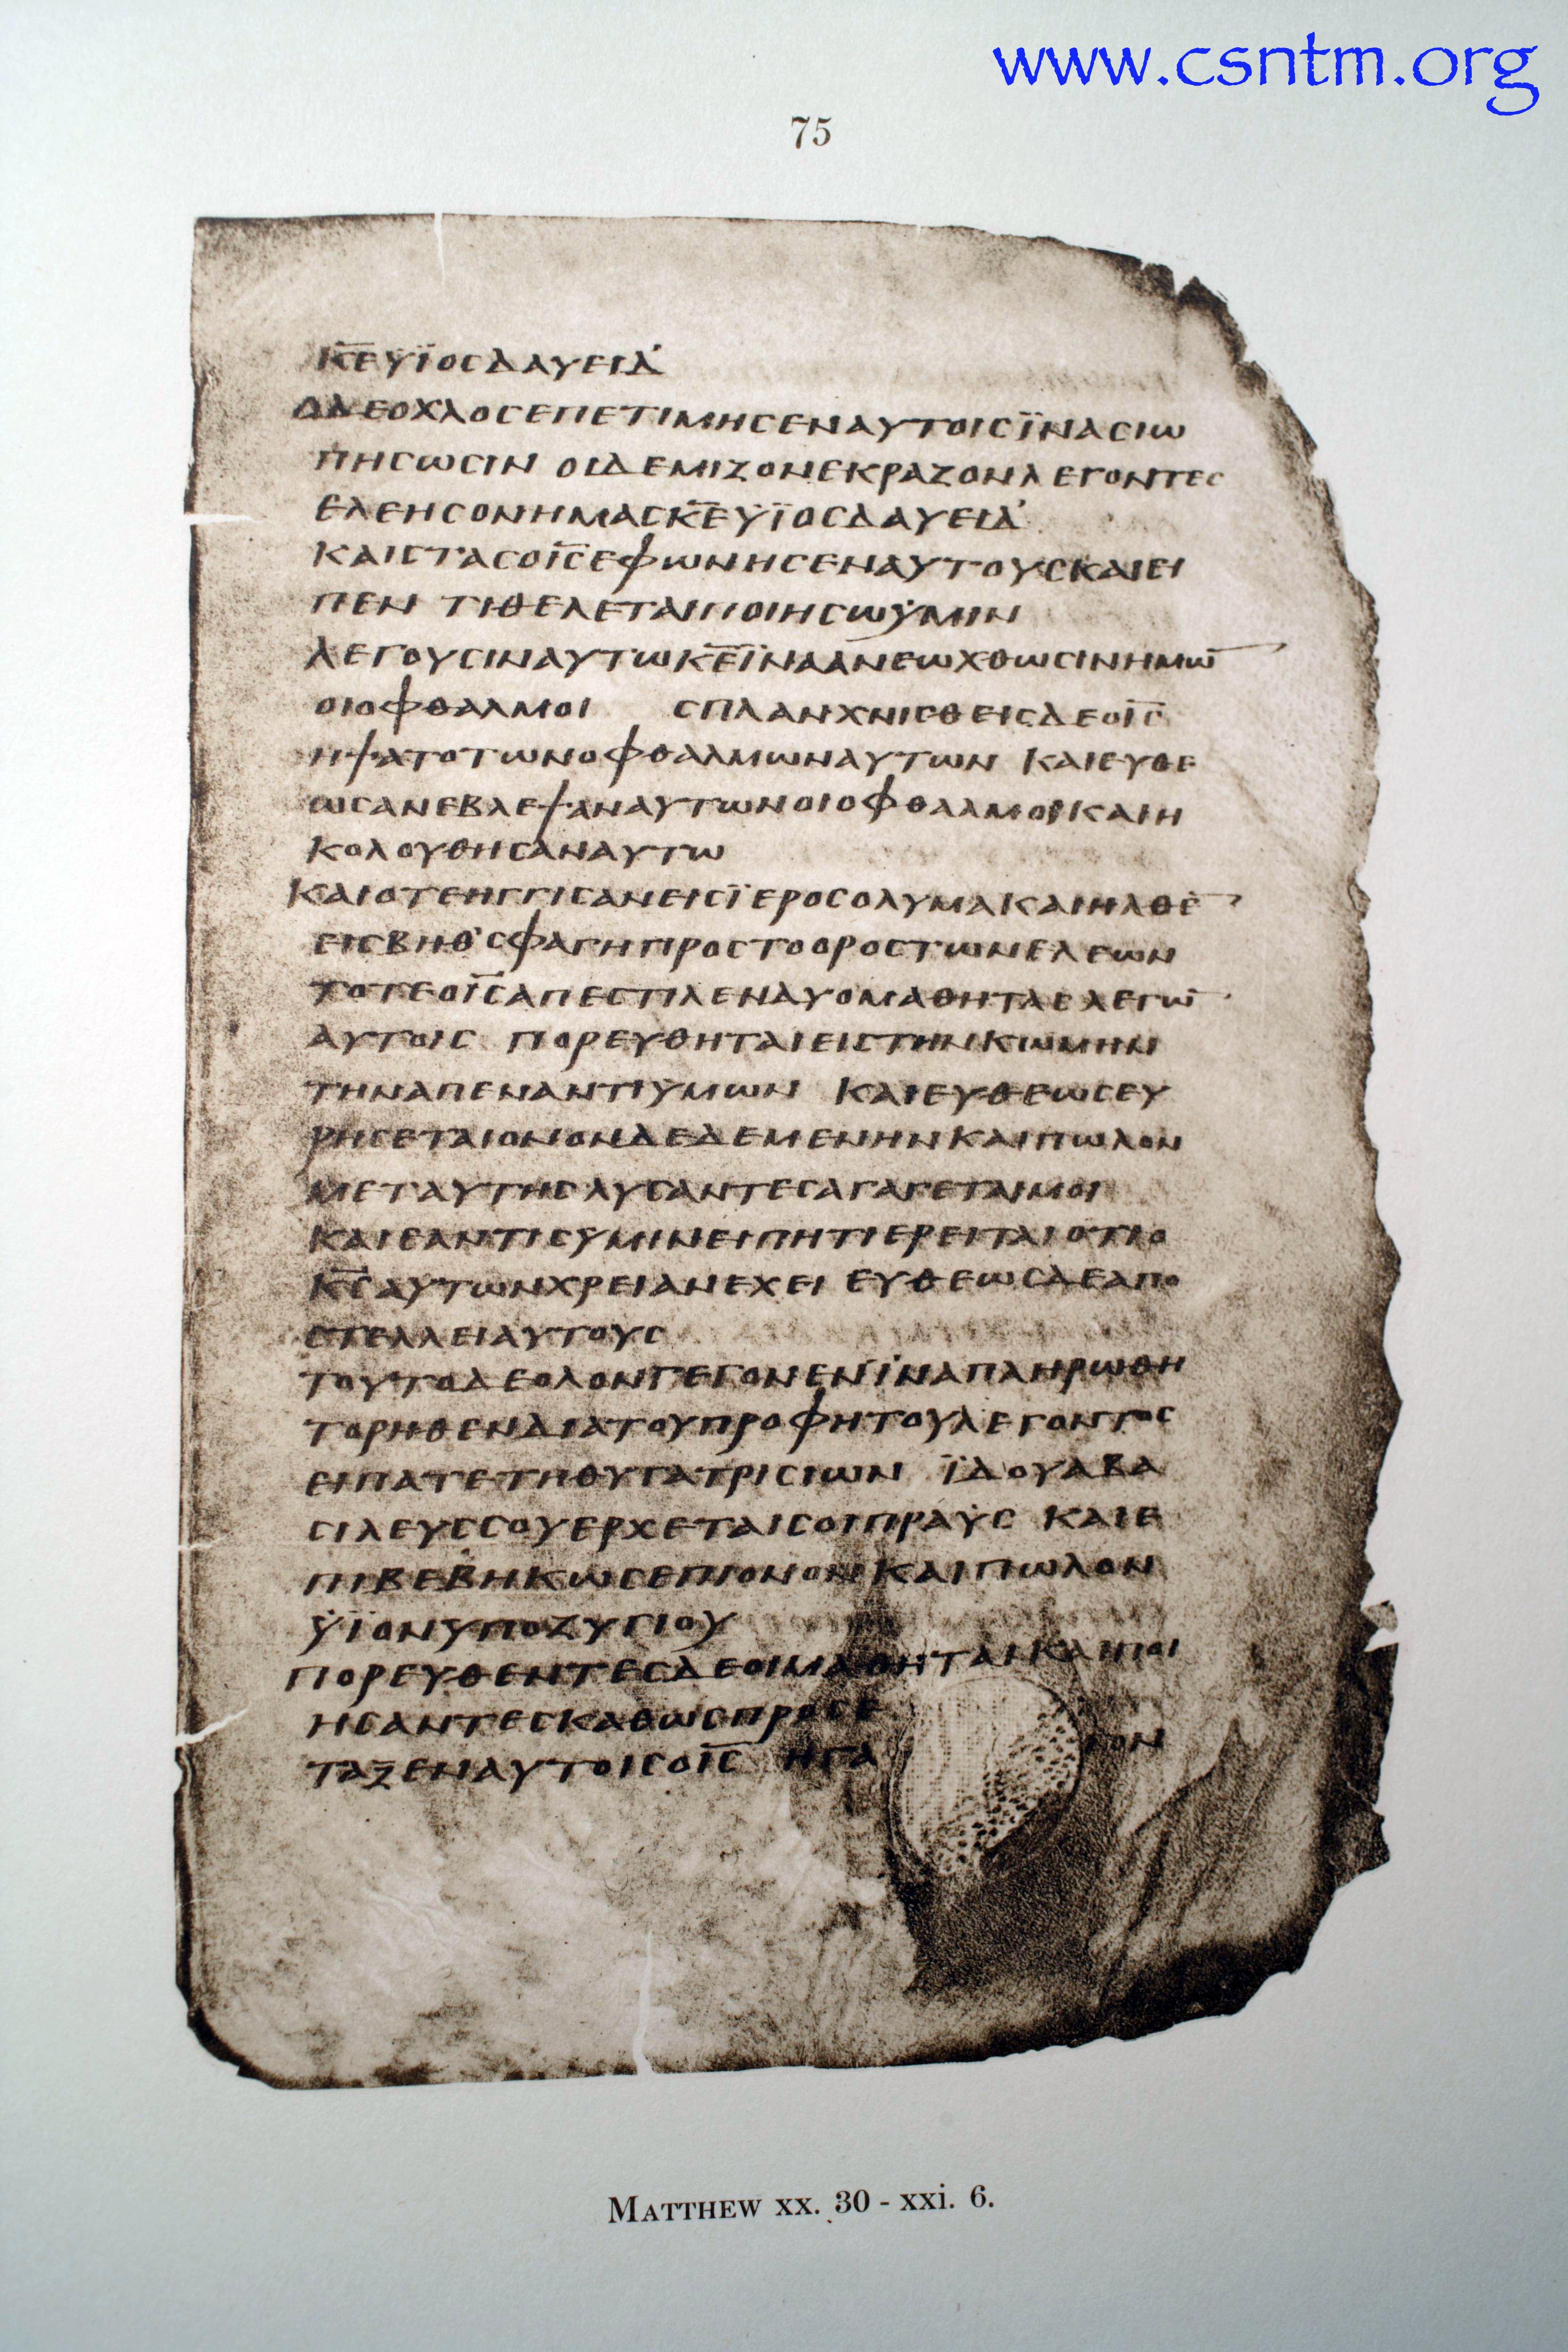 www.csntm.org
75
Κ̅Ε̅ΥΪΟCΔΑΥΕΙΔ
ΟΔΕΟΧΛΟCΕΠΕΤΙΜΗCΕΝΑΥΤΟΙCΪΝΑCΙΩ
ΠΗCΩCΙΝ ΟΙΔΕΜΙΖΟΝΕΚΡΑΖΟΝΛΕΓΟΝΤΕC
ΕΛΕΗCΟΝΗΜΑCΚ̅Ε̅ΥΪΟCΔΑΥΕΙΔ
ΚΑΙCΤΑCΟΙ̅C̅ΕΦΩΝΗCΕΝΑΥΤΟΥCΚΑΙΕΙ
ΠΕΝ ΤΙΘΕΛΕΤΑΙΠΟΙΗCΩΫΜΙΝ
ΛΕΓΟΥCΙΝΑΥΤΩΚ̅Ε̅ΪΝΑΑΝΕΩΧΘΩCΙΝΗΜΩ̅
ΟΙΟΦΘΑΛΜΟΙ CΠΛΑΝΧΝΙCΘΕΙCΔΕΟΙ̅C̅
ΗΨΑΤΟΤΩΝΟΦΘΑΛΜΩΝΑΥΤΩΝ ΚΑΙΕΥΘΕ
ΩCΑΝΕΒΛΕΨΑΝΑΥΤΩΝΟΙΟΦΘΑΛΜΟΙΚΑΙΗ
ΚΟΛΟΥΘΗCΑΝΑΥΤΩ
ΚΑΙΟΤΕΗΓΓΙCΑΝΕΙCΪΕΡΟCΟΛΥΜΑΚΑΙΗΛΘΕ̅
ΕΙCΒΗΘ'CΦΑΓΗΠΡΟCΤΟΟΡΟCΤΩΝΕΛΕΩΝ
ΤΟΤΕΟΙ̅C̅ΑΠΕCΤΙΛΕΝΔΥΟΜΑΘΗΤΑCΛΕΓΩ̅
ΑΥΤΟΙC ΠΟΡΕΥΘΗΤΑΙΕΙCΤΗΝΚΩΜΗΝ
ΤΗΝΑΠΕΝΑΝΤΙΫΜΩΝ ΚΑΙΕΥΘΕΩCΕΥ
ΡΗCΕΤΑΙΟΝΟΝΔΕΔΕΜΕΝΗΝΚΑΙΠΩΛΟΝ
ΜΕΤΑΥΤΗCΛΥCΑΝΤΕCΑΓΑΓΕΤΑΙΜΟΙ
ΚΑΙΕΑΝΤΙCΫΜΙΝΕΙΠΗΤΙΕΡΕΙΤΑΙΟΤΙΟ
Κ̅C̅ΑΥΤΩΝΧΡΕΙΑΝΕΧΕΙ ΕΥΘΕΩCΔΕΑΠΟ
CΤΕΛΛΕΙΑΥΤΟΥC
ΤΟΥΤΟΔΕΟΛΟΝΓΕΓΟΝΕΝΪΝΑΠΛΗΡΩΘΗ
ΤΟΡΗΘΕΝΔΙΑΤΟΥΠΡΟΦΗΤΟΥΛΕΓΟΝΤΟC
ΕΙΠΑΤΕΤΗΘΥΓΑΤΡΙCΙΩΝ ΪΔΟΥΑΒΑ
CΙΛΕΥCCΟΥΕΡΧΕΤΑΙCΟΙΠΡΑΫC ΚΑΙΕ
ΠΙΒΕΒΗΚΩCΕΠΙΟΝΟΝΚΑΙΠΩΛΟΝ
ΫΪΟΝΫΠΟΖΥΓΙΟΥ
ΠΟΡΕΥΘΕΝΤΕCΔΕΟΙΜΑΘΗΤΑΙΚΑΙΠΟΙ
ΗCΑΝΤΕCΚΑΘΩCΠΡΟCΕ
ΤΑΞΕΝΑΥΤΟΙCΟΙ̅C̅ ΗΓΑ ΓΟΝ
MATTHEW XX. 30 - XXI. 6.